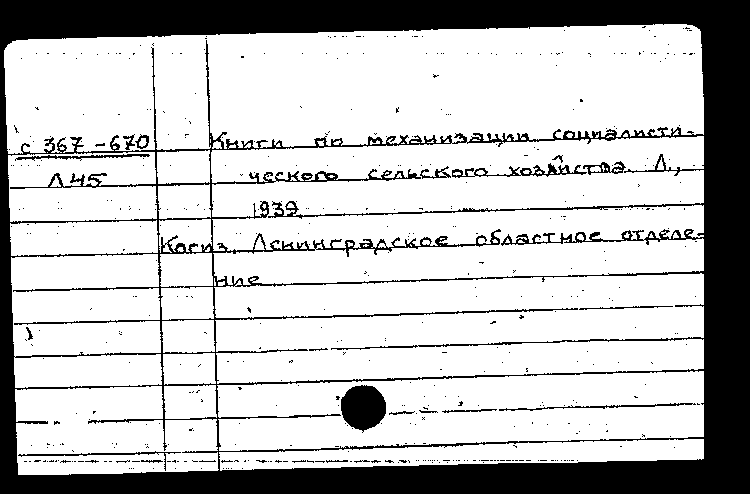 с 367-670 Книги по механизации социалисти-
Л45 ческого сельского хозяйства. Л.,
1939.
Когиз. Ленинградское областное отделе-
ние